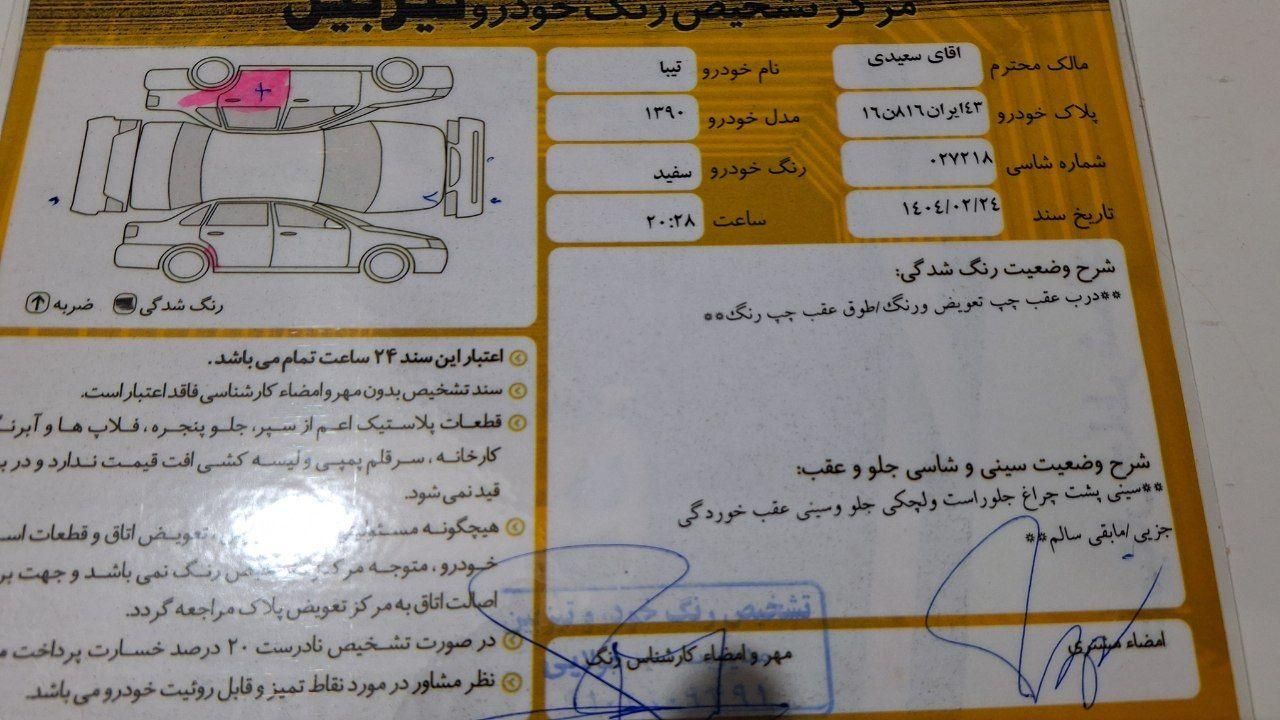 مرکز تشخیص رنگ خودرو تیزبین
مالک محترم اقای سعیدی
نام خودرو تیبا
پلاک خودرو ۴۳ایران۸۱۶ن۱۶
مدل خودرو ۱۳۹۰
شماره شاسی ۰۲۷۲۱۸
رنگ خودرو سفید
تاریخ سند ۱۴۰۴/۰۲/۲۴
ساعت ۲۰:۲۸
رنگ شدگی
ضربه
شرح وضعیت رنگ شدگی:
**درب عقب چپ تعویض ورنگ/طوق عقب چپ رنگ**
شرح وضعیت سینی و شاسی جلو و عقب:
**سینی پشت چراغ جلوراست ولچکی جلو وسینی عقب خوردگی
جزیی/مابقی سالم**
اعتبار این سند ۲۴ ساعت تمام می باشد.
سند تشخیص بدون مهر و امضاء کارشناسی فاقد اعتبار است.
قطعات پلاستیک اعم از سپر، جلو پنجره، فلاپ ها و
کارخانه، سرقلم پمپی و لیسه کشی افت قیمت ندارد و در
قید نمی شود.
هیچگونه تعویض اتاق و قطعات
خودرو، متوجه رنگ نمی باشد و جهت
اصالت اتاق به مرکز تعویض پلاک مراجعه گردد.
در صورت تشخیص نادرست ۲۰ درصد خسارت پرداخت
نظر مشاور در مورد نقاط تمیز و قابل روئیت خودرو می باشد.
مهر و امضاء کارشناس رنگ
امضاء مشتری
تشخیص رنگ خودرو تیزبین